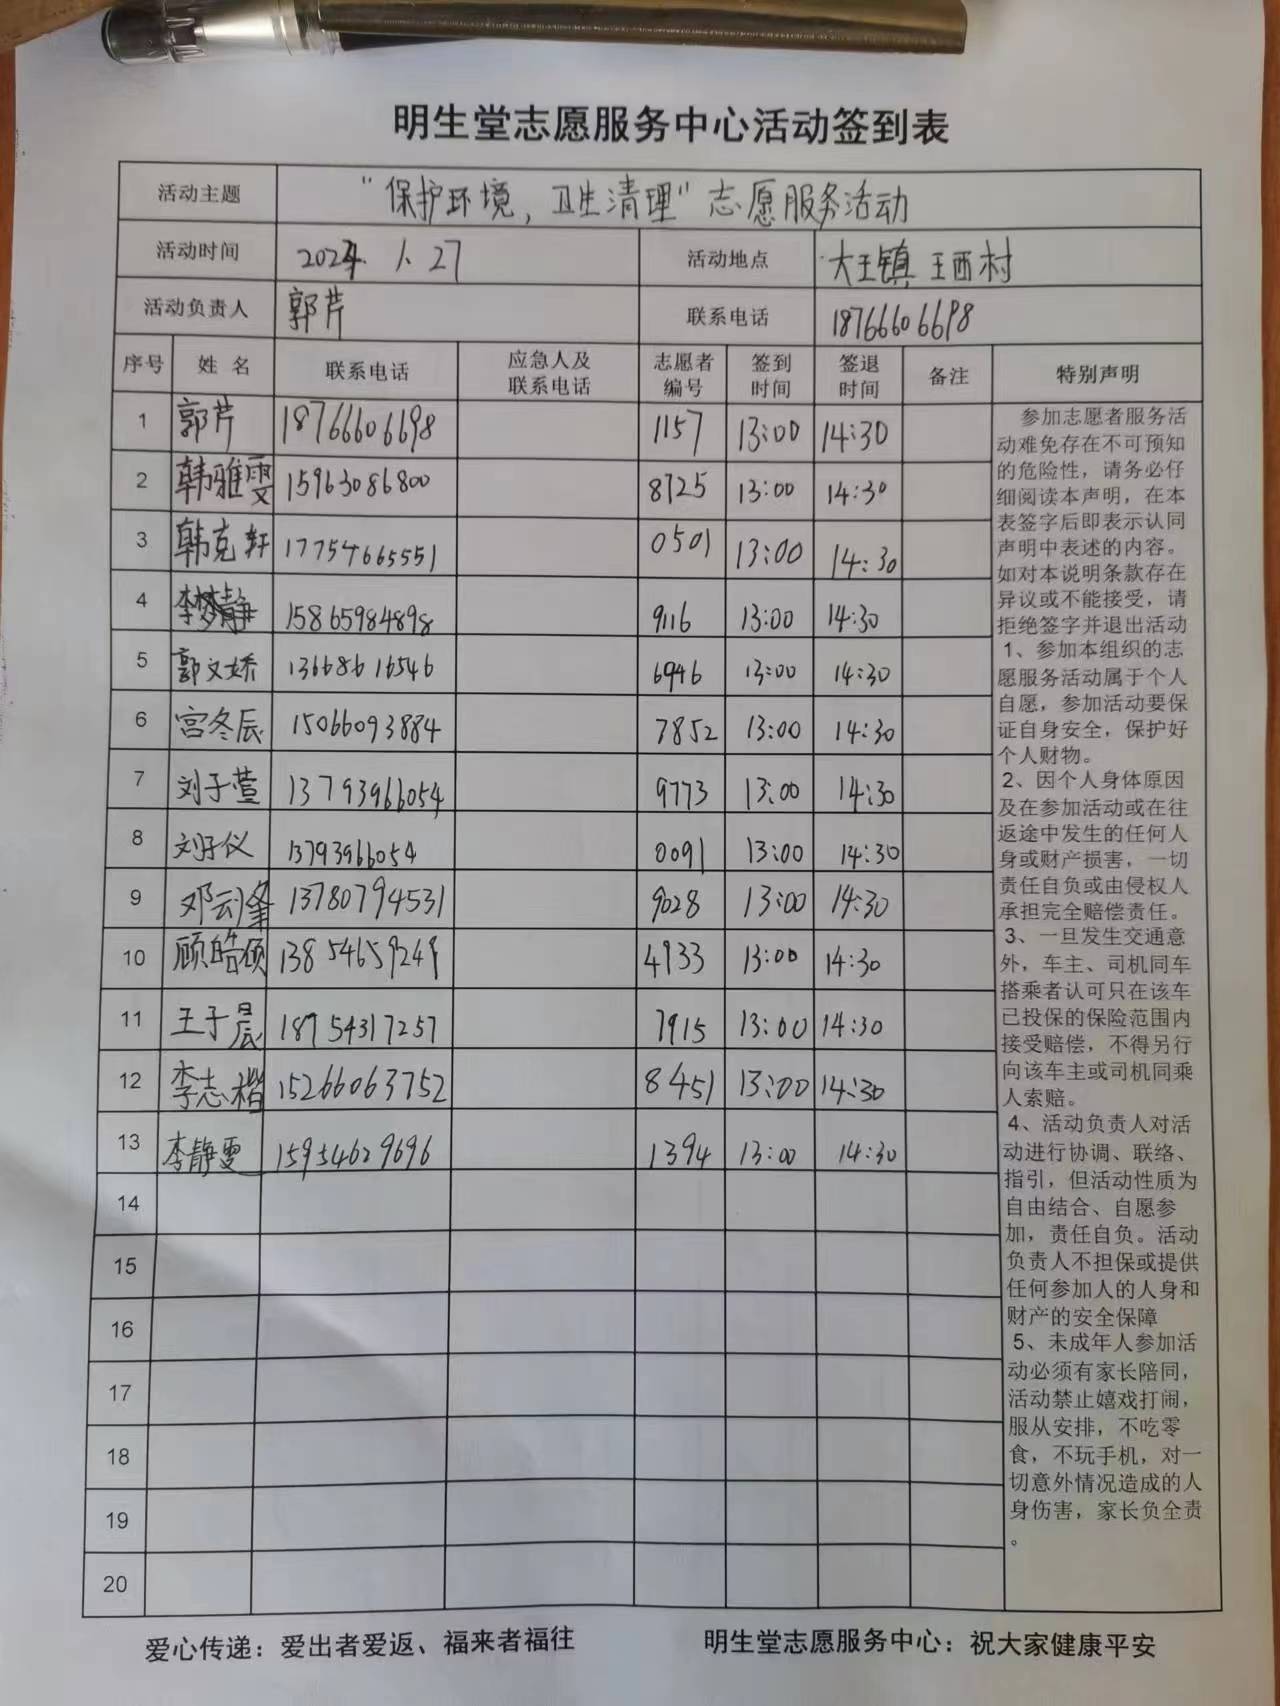 明生堂志愿服务中心活动签到表
活动主题 "保护环境，卫生清理"志愿服务活动
活动时间 2024.1.27 活动地点 大王镇王西村
活动负责人 郭芹 联系电话 18766606698
序号 姓名 联系电话 应急人及联系电话 志愿者编号 签到时间 签退时间 备注 特别声明
1 郭芹 18766606698 1157 13:00 14:30
2 韩雅雯 15963086800 8725 13:00 14:30
3 韩克轩 17754665551 0501 13:00 14:30
4 李梦静 15865984898 9116 13:00 14:30
5 郭文娇 13668616546 6946 13:00 14:30
6 宫冬辰 15066093884 7852 13:00 14:30
7 刘子萱 13793966054 9773 13:00 14:30
8 刘子仪 13793966054 0091 13:00 14:30
9 邓云峰 13780794531 9028 13:00 14:30
10 顾皓硕 13854659249 4933 13:00 14:30
11 王子晨 18754317257 7915 13:00 14:30
12 李志楷 15266063752 8451 13:00 14:30
13 李静雯 15954629696 1394 13:00 14:30
14
15
16
17
18
19
20
参加志愿者服务活
动难免存在不可预知
的危险性，请务必仔
细阅读本声明，在本
表签字后即表示认同
声明中表述的内容。
如对本说明条款存在
异议或不能接受，请
拒绝签字并退出活动
1、参加本组织的志
愿服务活动属于个人
自愿，参加活动要保
证自身安全，保护好
个人财物。
2、因个人身体原因
及在参加活动或在往
返途中发生的任何人
身或财产损害，一切
责任自负或由侵权人
承担完全赔偿责任。
3、一旦发生交通意
外，车主、司机同车
搭乘者认可只在该车
已投保的保险范围内
接受赔偿，不得另行
向该车主或司机同乘
人索赔。
4、活动负责人对活
动进行协调、联络、
指引，但活动性质为
自由结合、自愿参
加，责任自负。活动
负责人不担保或提供
任何参加人的人身和
财产的安全保障
5、未成年人参加活
动必须有家长陪同，
活动禁止嬉戏打闹，
服从安排，不吃零
食，不玩手机，对一
切意外情况造成的人
身伤害，家长负全责
。
爱心传递：爱出者爱返、福来者福往 明生堂志愿服务中心：祝大家健康平安